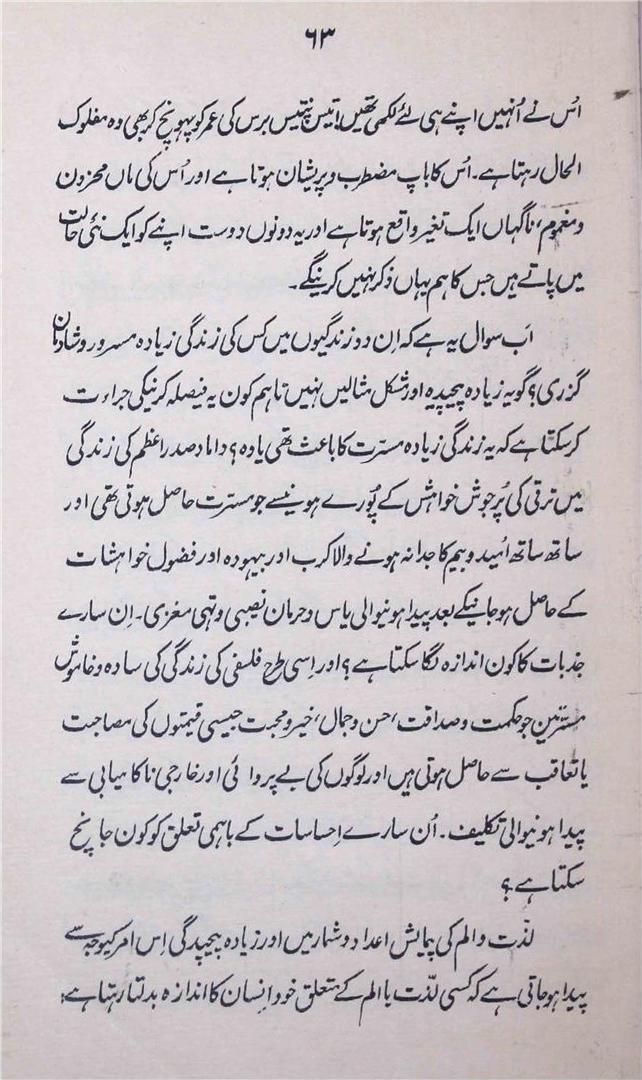 ۶۳
اُس نے اُنہیں اپنے ہی لئے لکھی تھیں! تیس پنتیس برس کی عمر کو پہونچ کر بھی وہ مفلوک
الحال رہتا ہے۔ اُس کا باپ مضطرب و پریشان ہوتا ہے اور اُس کی ماں محزون
و مغموم، ناگہاں ایک تغیر واقع ہوتا ہے اور یہ دونوں دوست اپنے کو ایک نئی حالت
میں پاتے ہیں جس کا ہم یہاں ذکر نہیں کرینگے۔
اَب سوال یہ ہے کہ اِن دو زندگیوں میں کس کی زندگی زیادہ مسرور و شادمان
گزری؟ گو یہ زیادہ پیچیدہ اور مشکل مثالیں نہیں تاہم کون یہ فیصلہ کرنیکی جراءت
کر سکتا ہے کہ یہ زندگی زیادہ مسرّت کا باعث تھی یا وہ؟ داماد صدر اعظم کی زندگی
میں ترقی کی پُرجوش خواہش کے پُورے ہونیسے جو مسرّت حاصل ہوتی تھی اور
ساتھ ساتھ اُمید و بیم کا جدا نہ ہونے والا کرب اور بیہودہ اور فضول خواہشات
کے حاصل ہو جانیکے بعد پیدا ہونیوالی یاس و حرمان نصیبی و تہی مغزی۔ اِن سارے
جذبات کا کون اندازہ لگا سکتا ہے؟ اور اِسی طرح فلسفی کی زندگی کی سادہ و خاموش
مسرتیں جو حکمت و صداقت، حسن و جمال، خیر و محبت جیسی قیمتوں کی مصاحبت
یا تعاقب سے حاصل ہوتی ہیں اور لوگوں کی بے پروائی اور خارجی ناکامیابی سے
پیدا ہونیوالی تکلیف۔ اُن سارے اِحساسات کے باہمی تعلق کو کون جانچ
سکتا ہے؟
لذّت و الم کی پیمایش اعداد و شمار میں اور زیادہ پیچیدگی اِس امر کیوجہ سے
پیدا ہو جاتی ہے کہ کسی لذّت یا الم کے متعلق خود اِنسان کا اندازہ بدلتا رہتا ہے؛